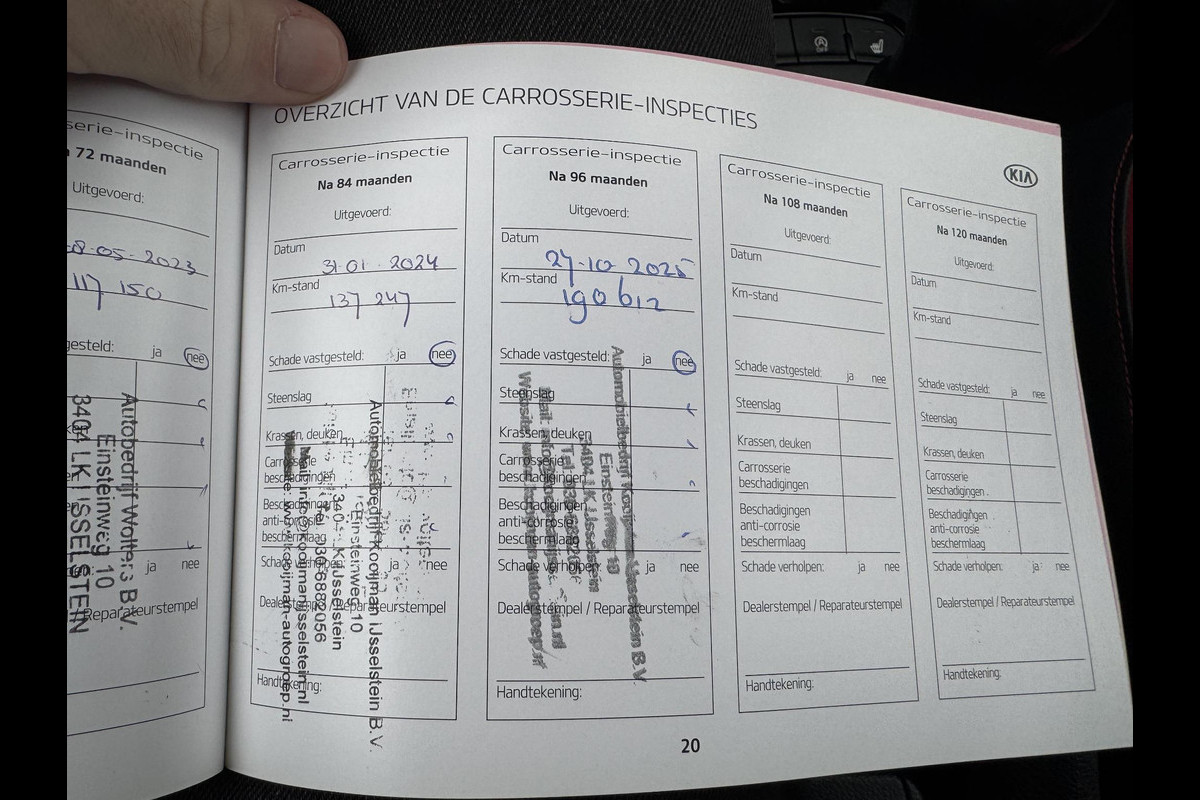 OVERZICHT VAN DE CARROSSERIE-INSPECTIES
KIA
serie-inspectie
72 maanden
Uitgevoerd:
8-05-2023
117 150
gesteld: ja nee
ja nee
Reparateurstempel
Autobedrijf Wolters B.V.
Einsteinweg 10
3404 LK IJSSELSTEIN
Carrosserie-inspectie
Na 84 maanden
Uitgevoerd:
Datum
31-01-2024
Km-stand
137 247
Schade vastgesteld: ja nee
Steenslag
Krassen, deuken
Carrosserie
beschadigingen
Beschadigingen
anti-corrosie
beschermlaag
Schade verholpen: ja nee
Dealerstempel / Reparateurstempel
Handtekening:
Automobielbedrijf Kooijman IJsselstein B.V.
Einsteinweg 10
3404 LK IJsselstein
Carrosserie-inspectie
Na 96 maanden
Uitgevoerd:
Datum
27-10-2025
Km-stand
190612
Schade vastgesteld: ja nee
Steenslag
Krassen, deuken
Carrosserie
beschadigingen
Beschadigingen
anti-corrosie
beschermlaag
Schade verholpen: ja nee
Dealerstempel / Reparateurstempel
Handtekening:
Automobielbedrijf Kooijman IJsselstein B.V.
Einsteinweg 10
3404 LK IJsselstein
Carrosserie-inspectie
Na 108 maanden
Uitgevoerd:
Datum
Km-stand
Schade vastgesteld: ja nee
Steenslag
Krassen, deuken
Carrosserie
beschadigingen
Beschadigingen
anti-corrosie
beschermlaag
Schade verholpen: ja nee
Dealerstempel / Reparateurstempel
Handtekening:
Carrosserie-inspectie
Na 120 maanden
Uitgevoerd:
Datum
Km-stand
Schade vastgesteld: ja nee
Steenslag
Krassen, deuken
Carrosserie
beschadigingen
Beschadigingen
anti-corrosie
beschermlaag
Schade verholpen: ja nee
Dealerstempel / Reparateurstempel
Handtekening:
20